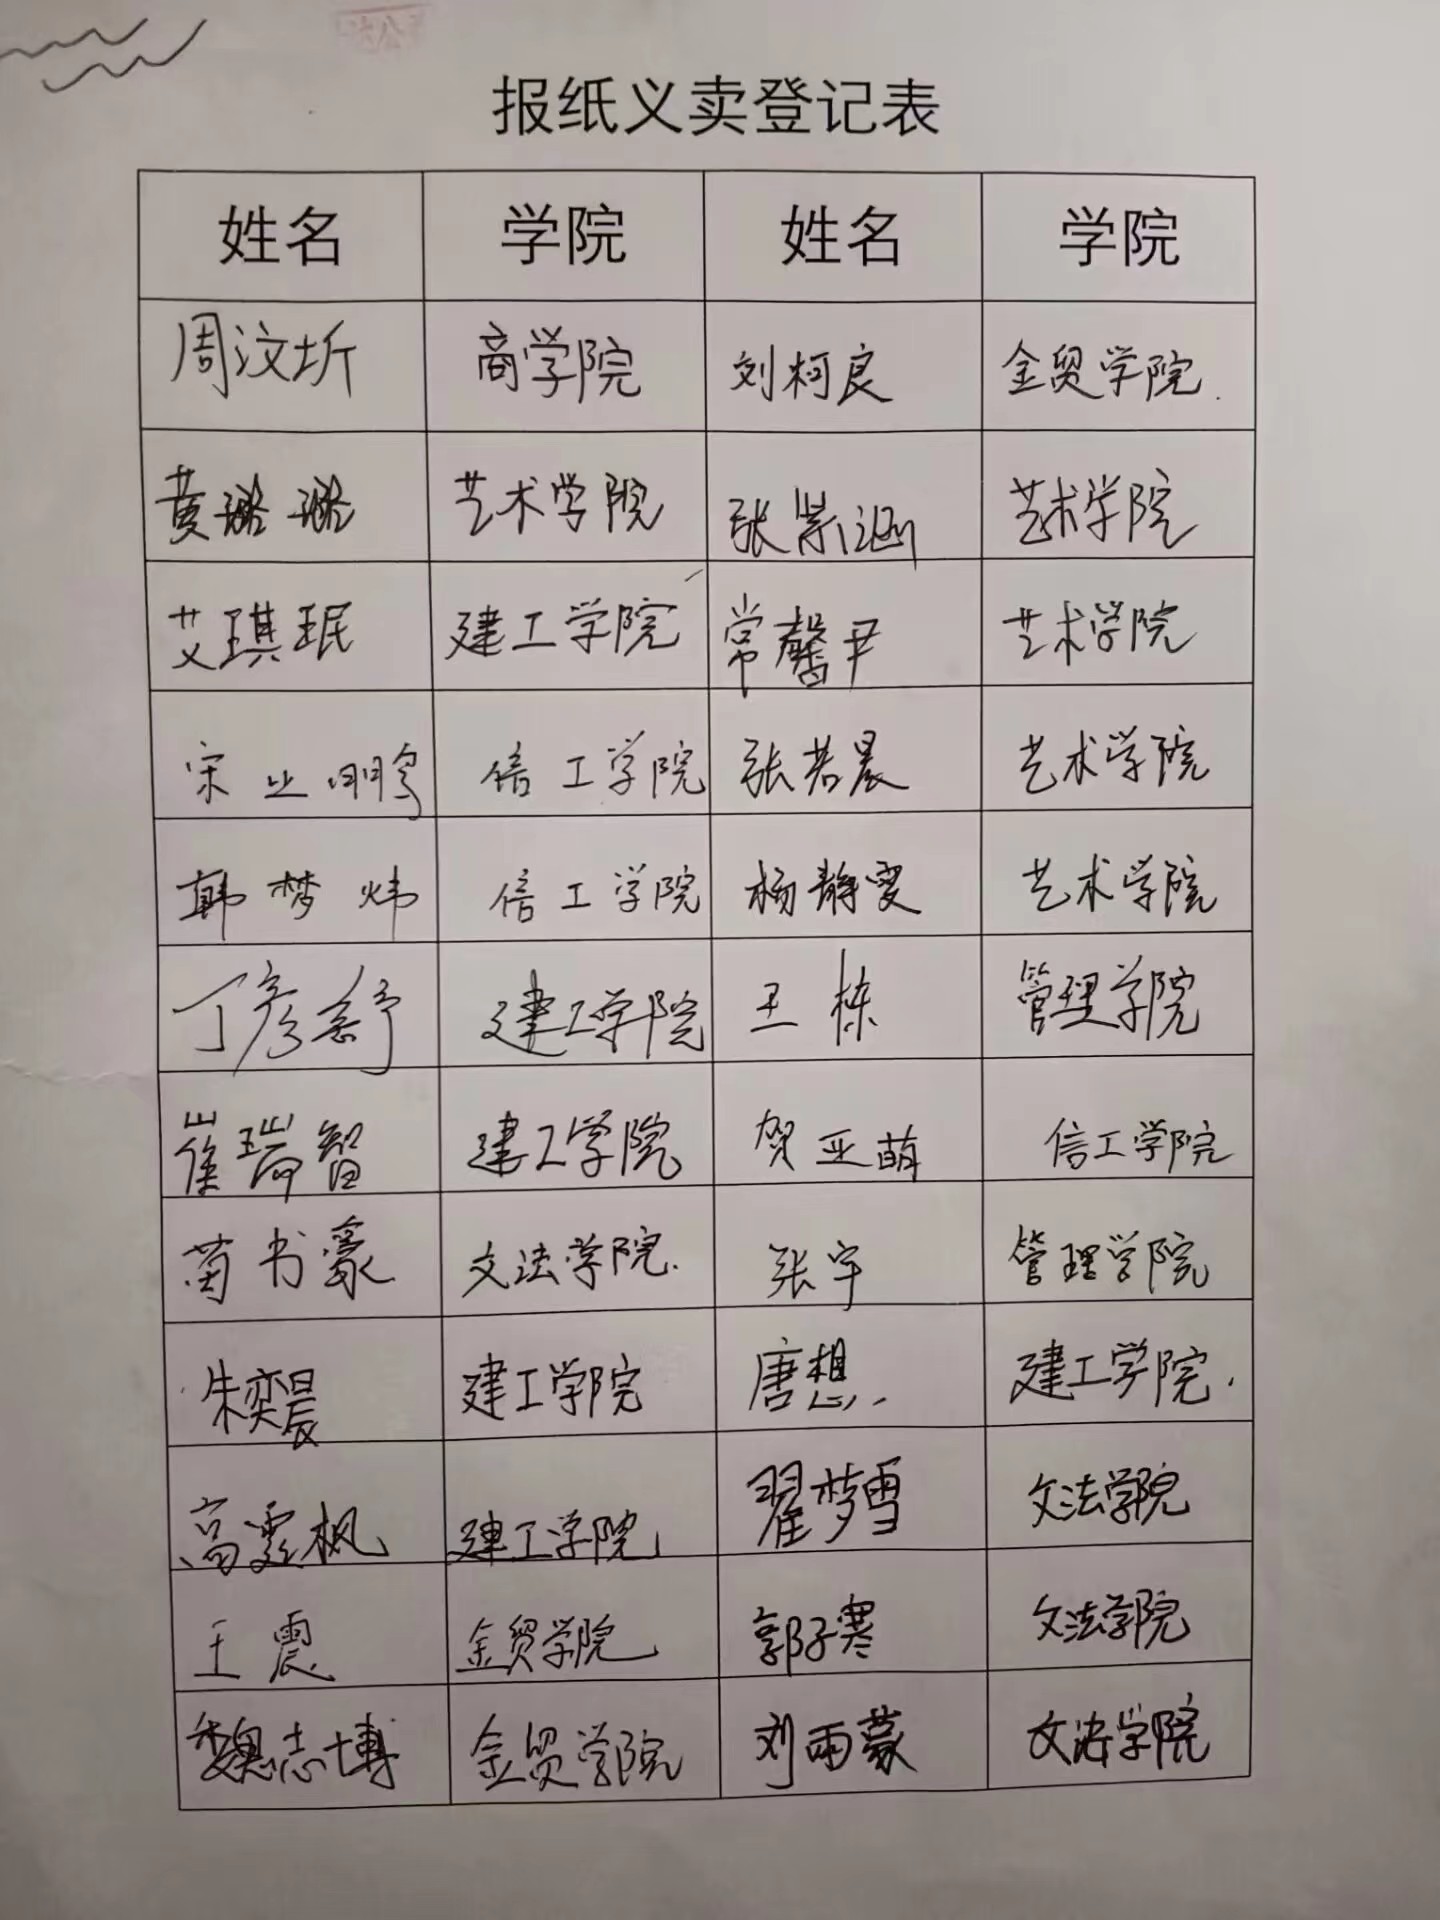 报纸义卖登记表
姓名 学院 姓名 学院
周汶圻 商学院 刘柯良 金贸学院.
黄璐璐 艺术学院 张紫涵 艺术学院
艾琪珉 建工学院 常馨尹 艺术学院
宋业鹏 信工学院 张若晨 艺术学院
韩梦炜 信工学院 杨静雯 艺术学院
丁彦舒 建工学院 王栋 管理学院
崔瑞智 建工学院 贺亚萌 信工学院
苗书豪 文法学院. 张宇 管理学院
朱奕晨 建工学院 唐想 建工学院.
高霆枫 建工学院 翟梦雪 文法学院
王震 金贸学院 郭子寒 文法学院
魏志博 金贸学院 刘雨蒙 文法学院